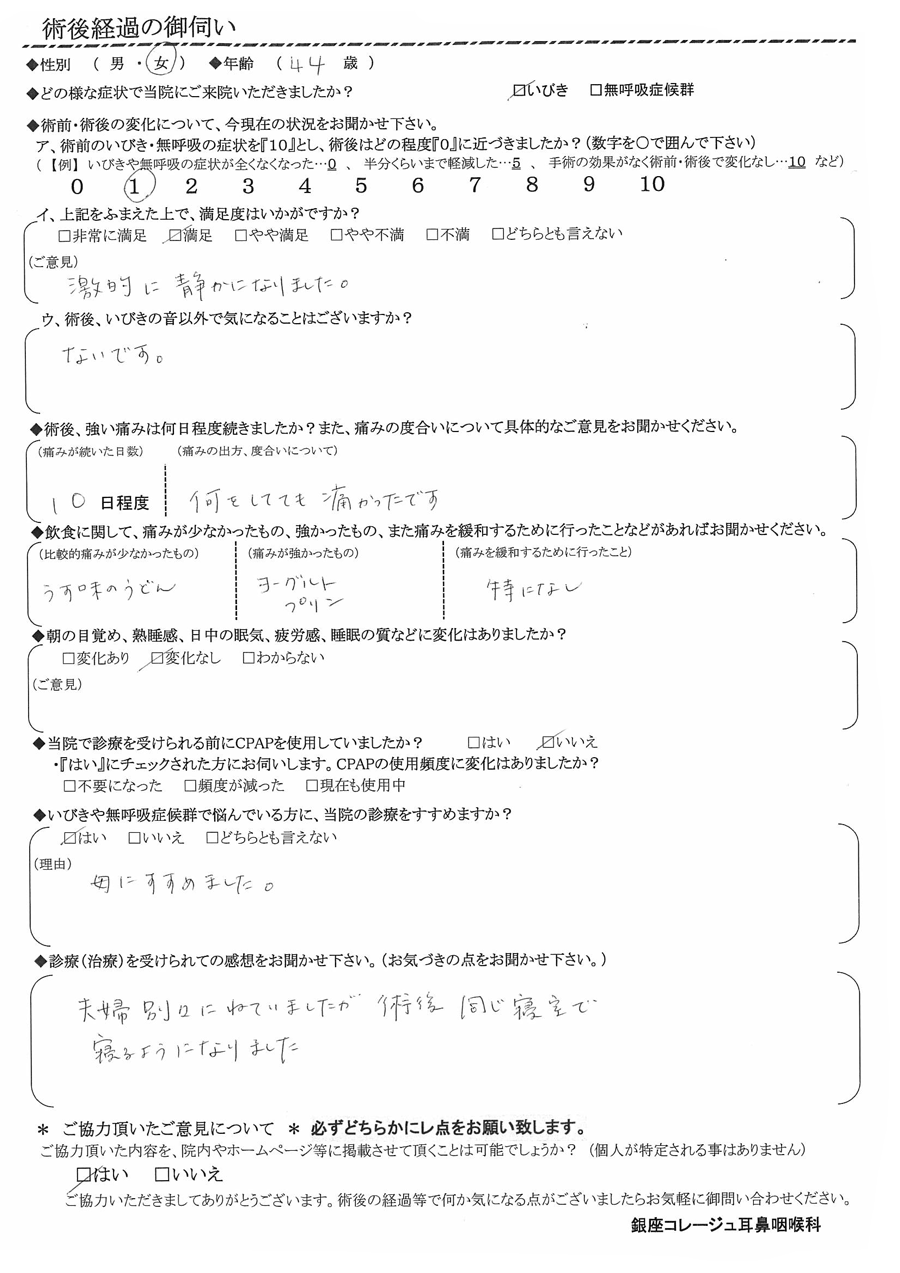 術後経過の御伺い
◆性別 （ 男 ・ 女 ） ◆年齢 （ 44 歳 ）
◆どの様な症状で当院にご来院いただきましたか？ ☑いびき □無呼吸症候群
◆術前・術後の変化について、今現在の状況をお聞かせ下さい。
ア、術前のいびき・無呼吸の症状を『10』とし、術後はどの程度『0』に近づきましたか？（数字を○で囲んで下さい）
（【例】 いびきや無呼吸の症状が全くなくなった…0 、 半分くらいまで軽減した…5 、 手術の効果がなく術前・術後で変化なし…10 など）
0 1 2 3 4 5 6 7 8 9 10
イ、上記をふまえた上で、満足度はいかがですか？
□非常に満足 ☑満足 □やや満足 □やや不満 □不満 □どちらとも言えない
（ご意見）
激的に静かになりました。
ウ、術後、いびきの音以外で気になることはございますか？
ないです。
◆術後、強い痛みは何日程度続きましたか？また、痛みの度合いについて具体的なご意見をお聞かせください。
（痛みが続いた日数） （痛みの出方、度合いについて）
10 日程度 何をしてても痛かったです
◆飲食に関して、痛みが少なかったもの、強かったもの、また痛みを緩和するために行ったことなどがあればお聞かせください。
（比較的痛みが少なかったもの） （痛みが強かったもの） （痛みを緩和するために行ったこと）
うす味のうどん ヨーグルト 特になし
プリン
◆朝の目覚め、熟睡感、日中の眠気、疲労感、睡眠の質などに変化はありましたか？
□変化あり ☑変化なし □わからない
（ご意見）
◆当院で診療を受けられる前にCPAPを使用していましたか？ □はい ☑いいえ
・『はい』にチェックされた方にお伺いします。CPAPの使用頻度に変化はありましたか？
□不要になった □頻度が減った □現在も使用中
◆いびきや無呼吸症候群で悩んでいる方に、当院の診療をすすめますか？
☑はい □いいえ □どちらとも言えない
（理由）
母にすすめました。
◆診療（治療）を受けられての感想をお聞かせ下さい。（お気づきの点をお聞かせ下さい。）
夫婦別々にねていましたが 術後 同じ寝室で
寝るようになりました
＊ ご協力頂いたご意見について ＊ 必ずどちらかにレ点をお願い致します。
ご協力頂いた内容を、院内やホームページ等に掲載させて頂くことは可能でしょうか？ （個人が特定される事はありません）
☑はい □いいえ
ご協力いただきましてありがとうございます。術後の経過等で何か気になる点がございましたらお気軽に御問い合わせください。
銀座コレージュ耳鼻咽喉科